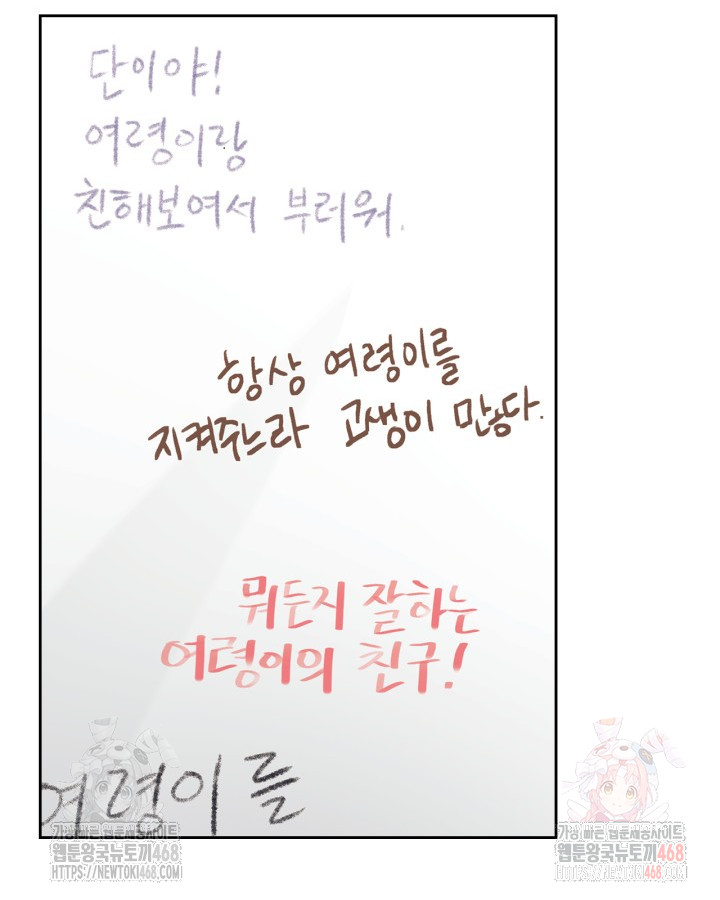 단이야!
여령이랑
친해보여서 부러워.
항상 여령이를
지켜주느라 고생이 만창다.
뭐든지 잘하는
여령이의 친구!
여령이를
가장 빠른 웹툰제공사이트
웹툰왕국뉴토끼468
HTTPS://NEWTOKI468.COM
가장 빠른 웹툰제공사이트
웹툰왕국뉴토끼468
HTTPS://NEWTOKI468.COM